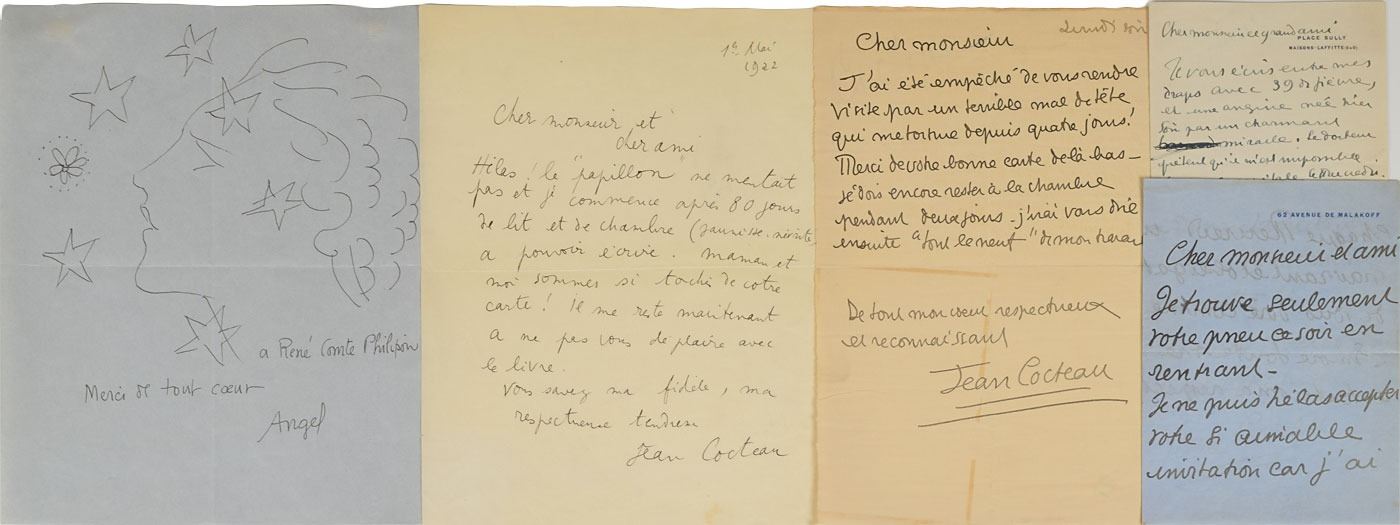 a René Comte Philipon
Merci de tout cœur
Angel
1er Mai
1922
Cher monsieur et
cher ami
Hélas! le "papillon" ne mentait
pas et je commence après 80 jours
de lit et de chambre (jaunisse. névrite
a pouvoir écrire. maman et
moi sommes si touchés de votre
carte! Il me reste maintenant
a ne pas vous déplaire avec
le livre.
Vous savez ma fidèle, ma
respectueuse tendresse
Jean Cocteau
Lundi soir
Cher monsieur
J'ai été empêché de vous rendre
visite par un terrible mal de tête
qui me torture depuis quatre jours!
Merci de votre bonne carte de là-bas—
je dois encore rester à la chambre
pendant deux jours - j'irai vous dire
ensuite "tout le neuf" de mon travail
De tout mon cœur respectueux
et reconnaissant
Jean Cocteau
Cher monsieur ce grand ami
PLACE SULLY
MAISONS-LAFFITTE (S&O)
Je vous écris entre mes
draps avec 39 de fièvre,
et une angine née hier
soir par un charmant
miracle. Le docteur
prétend qu'il m'est impossible
62 AVENUE DE MALAKOFF
Cher monsieur et ami
Je trouve seulement
votre pneu ce soir en
rentrant—
Je ne puis hélas accepter
votre si aimable
invitation car j'ai